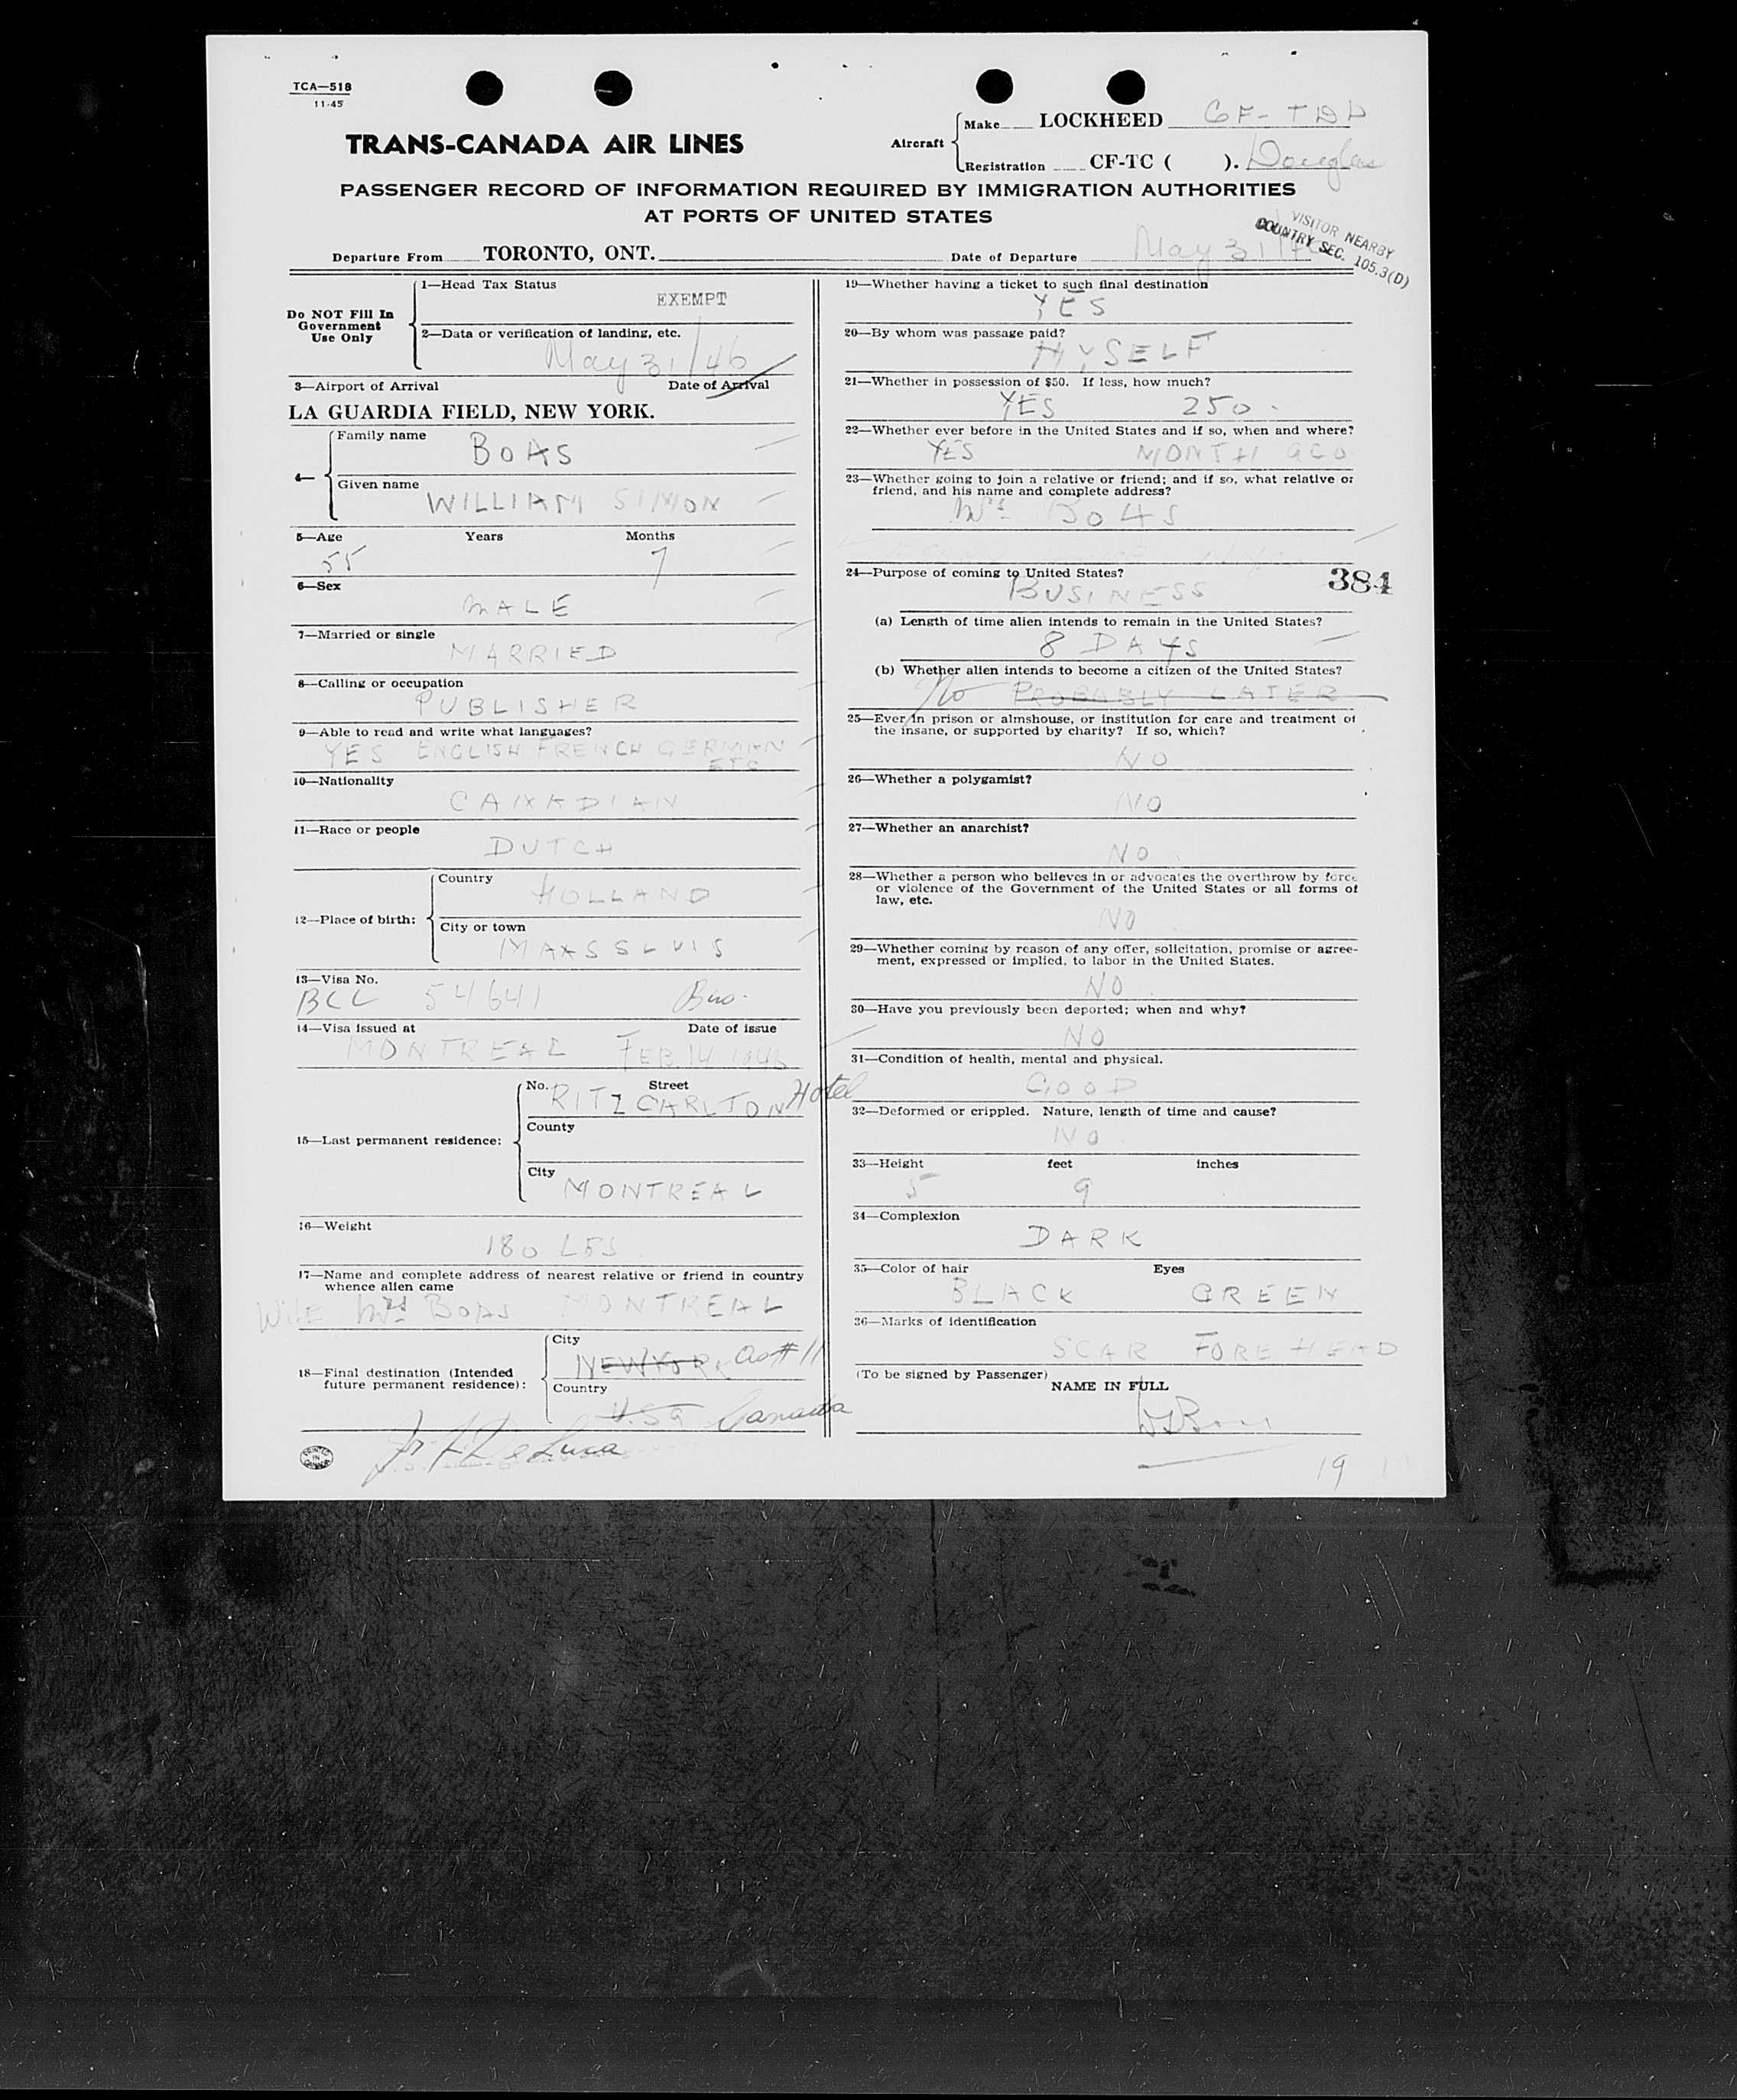 TCA—518
11-45
TRANS-CANADA AIR LINES
Aircraft
Make LOCKHEED
Registration CF-TC ( ). Douglas
PASSENGER RECORD OF INFORMATION REQUIRED BY IMMIGRATION AUTHORITIES
AT PORTS OF UNITED STATES
VISITOR NEARBY
COUNTRY SEC. 105.3(D)
Departure From TORONTO, ONT. Date of Departure May 31
Do NOT Fill In
Government
Use Only
1—Head Tax Status
EXEMPT
2—Data or verification of landing, etc.
May 31/46
3—Airport of Arrival Date of Arrival
LA GUARDIA FIELD, NEW YORK.
4—
Family name
BOAS
Given name
WILLIAM SIMON
5—Age Years Months
55 7
6—Sex
MALE
7—Married or single
MARRIED
8—Calling or occupation
PUBLISHER
9—Able to read and write what languages?
YES ENGLISH FRENCH GERMAN
ETC
10—Nationality
CANADIAN
11—Race or people
DUTCH
12—Place of birth:
Country
HOLLAND
City or town
MAASSLUIS
13—Visa No.
BCC 54641
14—Visa issued at Date of issue
MONTREAL FEB. 14 1946
15—Last permanent residence:
No. Street
RITZ CARLTON Hotel
County
City
MONTREAL
16—Weight
180 LBS
17—Name and complete address of nearest relative or friend in country
whence alien came
WIFE Mrs BOAS MONTREAL
18—Final destination (Intended
future permanent residence):
City
NEW YORK as # 11
Country
U.S.A Canada
PRINTED
IN
CANADA
19—Whether having a ticket to such final destination
YES
20—By whom was passage paid?
MYSELF
21—Whether in possession of $50. If less, how much?
YES 250.
22—Whether ever before in the United States and if so, when and where?
YES MONTH AGO
23—Whether going to join a relative or friend; and if so, what relative or
friend, and his name and complete address?
BOAS
24—Purpose of coming to United States?
BUSINESS
384
(a) Length of time alien intends to remain in the United States?
8 DAYS
(b) Whether alien intends to become a citizen of the United States?
No PROBABLY LATER
25—Ever in prison or almshouse, or institution for care and treatment of
the insane, or supported by charity? If so, which?
NO
26—Whether a polygamist?
NO
27—Whether an anarchist?
NO
28—Whether a person who believes in or advocates the overthrow by force
or violence of the Government of the United States or all forms of
law, etc.
NO
29—Whether coming by reason of any offer, solicitation, promise or agree-
ment, expressed or implied, to labor in the United States.
NO
30—Have you previously been deported; when and why?
NO
31—Condition of health, mental and physical.
GOOD
32—Deformed or crippled. Nature, length of time and cause?
NO
33—Height feet inches
5 9
34—Complexion
DARK
35—Color of hair Eyes
BLACK GREEN
36—Marks of identification
SCAR FOREHEAD
(To be signed by Passenger)
NAME IN FULL
WSBoas
19